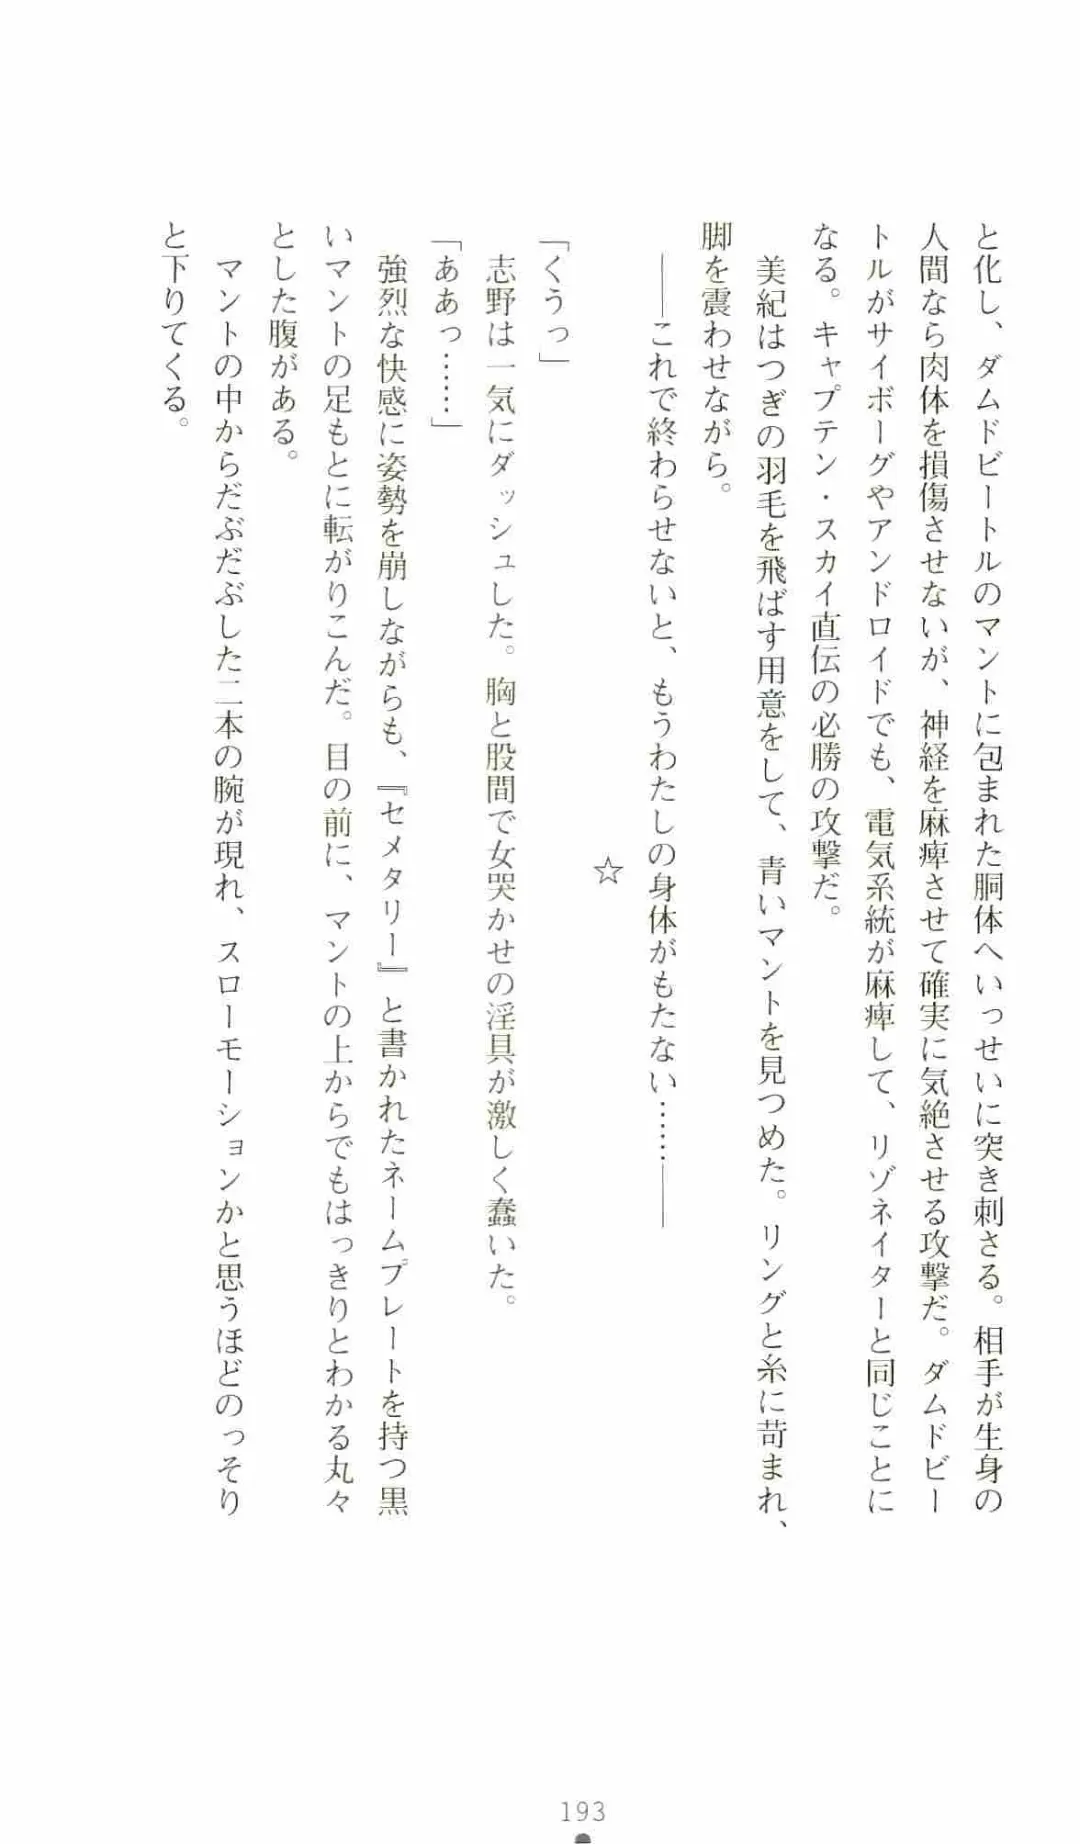 と化し、ダムドビートルのマントに包まれた胴体へいっせいに突き刺さる。相手が生身の
人間なら肉体を損傷させないが、神経を麻痺させて確実に気絶させる攻撃だ。ダムドビー
トルがサイボーグやアンドロイドでも、電気系統が麻痺して、リゾネイターと同じことに
なる。キャプテン・スカイ直伝の必勝の攻撃だ。
美紀はつぎの羽毛を飛ばす用意をして、青いマントを見つめた。リングと糸に苛まれ、
脚を震わせながら。
――これで終わらせないと、もうわたしの身体がもたない……――
☆
「くうっ」
志野は一気にダッシュした。胸と股間で女哭かせの淫具が激しく蠢いた。
「ああっ……」
強烈な快感に姿勢を崩しながらも、『セメタリー』と書かれたネームプレートを持つ黒
いマントの足もとに転がりこんだ。目の前に、マントの上からでもはっきりとわかる丸々
とした腹がある。
マントの中からだぶだぶした二本の腕が現れ、スローモーションかと思うほどのっそり
と下りてくる。
193